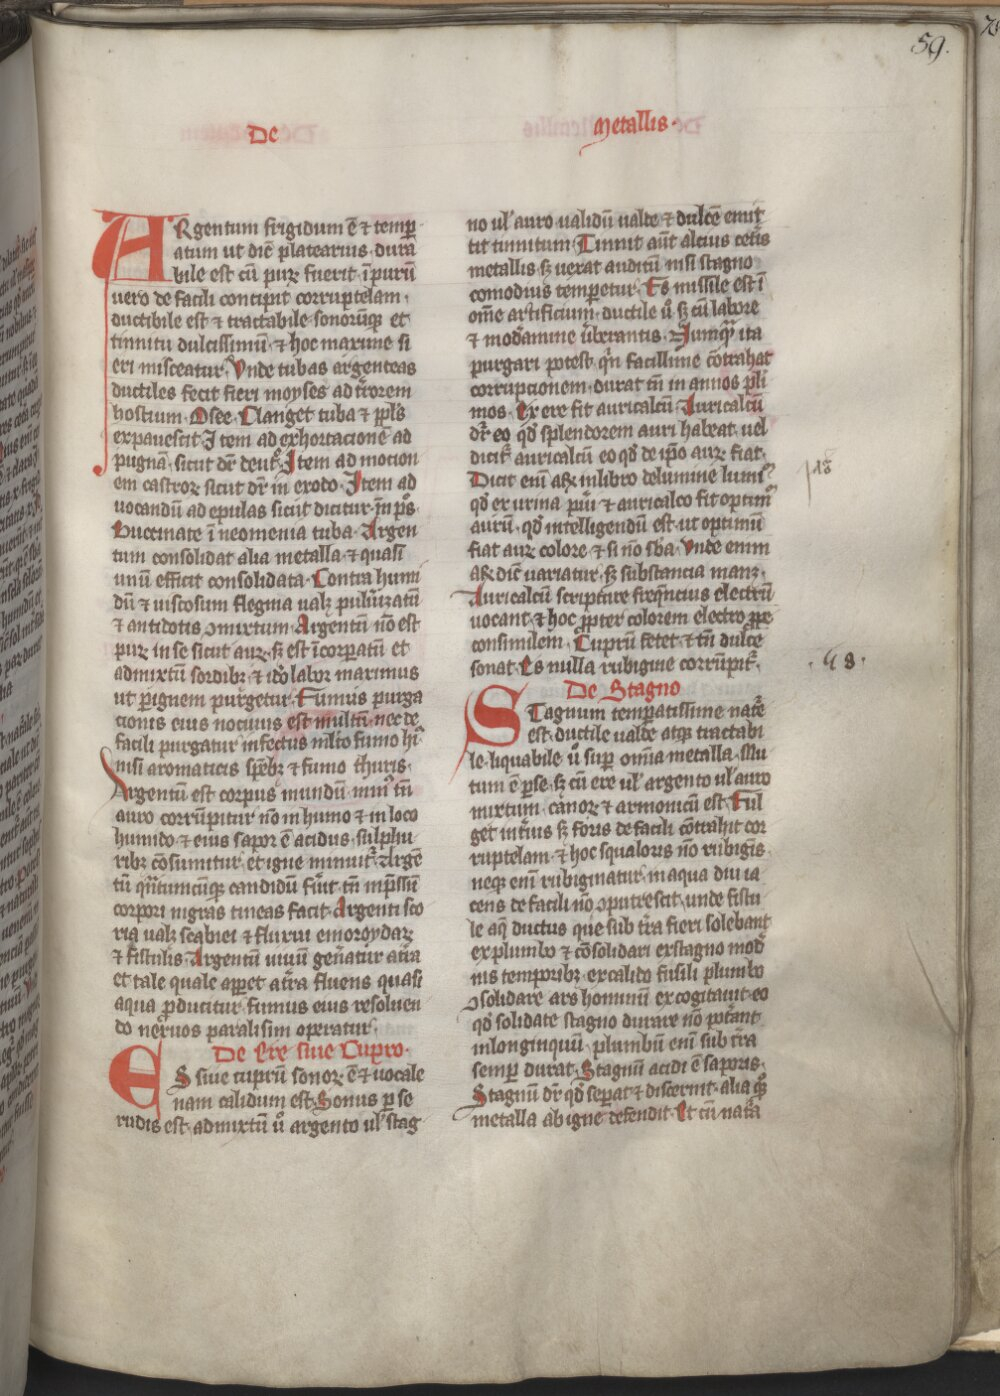 59.
De Metallis.
ARgentum frigidum ē ⁊ temꝑ
atum ut dic̄ platearius. dura
bile est cū puꝝ fuerit. īpurū
uero de facili contipit corruptelam.
ductibile est ⁊ tractabile. sonorūqꝫ et
tinnitu dulcissimū ⁊ hoc maxime si
eri misceatur. Vnde tubas argenteas
ductiles fecit fieri moyses ad t̄rorem
hostium. Osee. Clanget tuba ⁊ ppl̄s
expauescit. Item ad exhortacionē ad
pugnā. sicut dr̄ deut̄. Item ad motion
em castroꝝ sicut dr̄ in exodo. Item ad
uocandū ad epulas sicut dicitur. in pͣs.
Buccinate ī neomenia tuba. Argen
tum consolidat alia metalla ⁊ quasi
unū efficit consolidata. Contra humi
dū ⁊ uiscosum flegma ualꝫ puluīzatū
⁊ antidotis ꝯmixtum. Argentū nō est
puꝝ in se sicut auꝝ. sꝫ est īcorꝑatū et
admixtū sordibꝫ ⁊ iđo labor maximus
ut ꝑ ignem purgetur. Fumus purga
cionis eius nociuus est multū. nec de
facili purgatur infectus illo fumo
nisi aromaticis spēbꝫ ⁊ fumo thuris.
Argentū est corpus mundū
auro corrūpitur nō in humo ⁊ in loco
humido ⁊ eius sapor ē acidus. sulphu
ribꝫ cōsumitur et igne minuitꝛ. Argē
tū qn̄tumcūqꝫ candidū fūit tn̄ īp̄ssū
corpori nigras lineas facit. Argenti sco
ria ualꝫ scabiei ⁊ fluxui emoroydaꝝ
⁊ fistulis. Argentū uiuū gen̄atur
et tale quale apꝑet fluens quasi
aqua ꝓducitur. fumus eius resoluen
do neruos paralisim operatur.
De Ere siue Cupro.
ES siue cuprū sonoꝝ ē ⁊ uocale
nam calidum est. Sonus ꝑ se
rudis est. admixtū ū argento ul̓ stag
no ul̓ auro. ualidū ualde ⁊ dulcē emit
tit tinnitum. Tinnit aūt alcius cet̄is
metallis sꝫ uexat auditū nisi stagno
comodius temꝑetur. Es missile est ī
om̄e artificium. ductile ū sꝫ cū labore
⁊ mod̄amine ūberantis. ita
purgari potest qn̄ facillime cōtrahat
corrupcionem. durat tn̄ in annos pl̄i
mos. Ex ere fit auricalcū. Auricalcū
dr̄ eo qd̄ splendorem auri habeat. uel
dicitꝛ auricalcū eo qd̄ de ip̄o auꝝ fiat.
Dicit enī in libro de lumine
qd̄ ex urina pūi ⁊ auricalco fit optimū
aurū. qd̄ intelligendū est. ut optimū
fiat auꝝ colore ⁊ si nō sb̄a. Vnde enim
dic̄ uariatur. sꝫ substancia manꝫ.
Auricalcū scripture freq̄ncius electrū
uocant ⁊ hoc ꝓpter colorem electro ꝓpe
consimilem. Cuprū fetet ⁊ tn̄ dulce
sonat. Es nulla rubigine corrūpitꝛ.
De Stagno
STagnum temꝑatissime nat̄e
est. ductile ualde atqꝫ tractabi
le. liquabile ū suꝑ om̄ia metalla. Mu
tum ē ꝑ se. sꝫ cū ere ul̓ argento ul̓ auro
mixtum canoꝝ ⁊ armonicū est. Ful
get int̄ius sꝫ foris de facili cōtrahit cor
ruptelam. ⁊ hoc squaloris nō rubigīs.
neqꝫ enī rubiginatur. in aqua diu ia
cens de facili nō ꝯputrescit. unde fistu
le aq̄ ductus que sub t̄ra fieri solebant
ex plumbo ⁊ cōsolidari ex stagno mod̄
nis temporibꝫ ex calido fusili plumbo
ꝯsolidare ars hominū excogitauit. eo
qd̄ solidate stagno durare nō pot̄ant
in longinquū. plumbū enī sub t̄ra
semꝑ durat. Stagnū acidi ē saporis.
Stagnū dr̄ qd̄ seꝑat ⁊ discernit. alia
metalla ab igne defendit. Et cū nat̄a